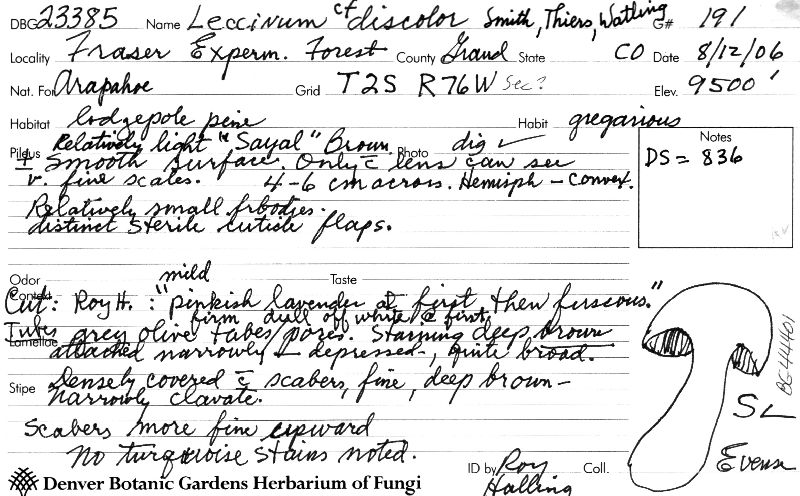 DBG 23385 Name Leccinum cf discolor Smith, Thiers, Watling G# 191
Locality Fraser Experm. Forest County Grand State CO Date 8/12/06
Nat. For Arapahoe Grid T2S R76W Sec? Elev. 9500'
Habitat lodgepole pine Habit gregarious
Pileus Relatively light "Sayal" Brown. Photo dig ✓
± Smooth surface. Only c̄ lens can see
v. fine scales. 4-6 cm across. Hemisph - convex.
Relatively small frbodies.
distinct sterile cuticle flaps.
Notes
DS = 836
Odor mild Taste
Context
Cut: Roy H. : "pinkish lavender at first then fuscous."
firm dull off white @ first
Tubes Lamellae grey olive tubes/pores. Staining deep brown
attached narrowly - depressed, quite broad.
Stipe Densely covered c̄ scabers, fine, deep brown -
narrowly clavate.
Scabers more fine upward
No turquoise stains noted.
SL
Evenson
Denver Botanic Gardens Herbarium of Fungi
ID by Roy Halling Coll.